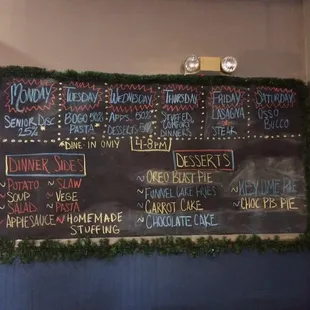 MONDAY
SENIOR DISC
25%
TUESDAY
BOGO 50%
PASTA
WEDNESDAY
APPS 50%
DESSERTS 50%
THURSDAY
SELECTED
COMBO
DINNERS
FRIDAY
LASAGNA
STEAK
SATURDAY
OSSO
BUCCO
*DINE IN ONLY
4-8PM
DINNER SIDES
~POTATO
~SOUP
~SALAD
APPLESAUCE
~SLAW
~VEGE
~PASTA
~HOMEMADE
STUFFING
DESSERTS
~OREO BLAST PIE
~FUNNEL CAKE FRIES
~CARROT CAKE
~CHOCOLATE CAKE
~KEY LIME PIE
~CHOC PB PIE